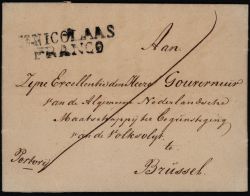 ST NICOLAAS
FRANCO
Aan
Zyne Excellentie den Heere Gouverneur
van de Algemeene Nederlandsche
Maatschappij ter Begunstiging
van de Volksvlyt.
Portvrij
te
Brüssel.